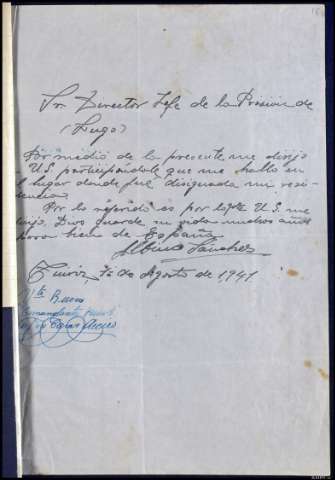 Sr Director Jefe de la Prision de
(Lugo)
Por medio de la presente me dirijo
U.S. participandole que me hallo en
el lugar donde fué designada mi resi-
dencia
Por lo referido es por lo que U.S. me
dirijo. Dios guarde su vida muchos años
para bien de España
Albino Sanchez
de Agosto de 1,941
Bueno
Comandante